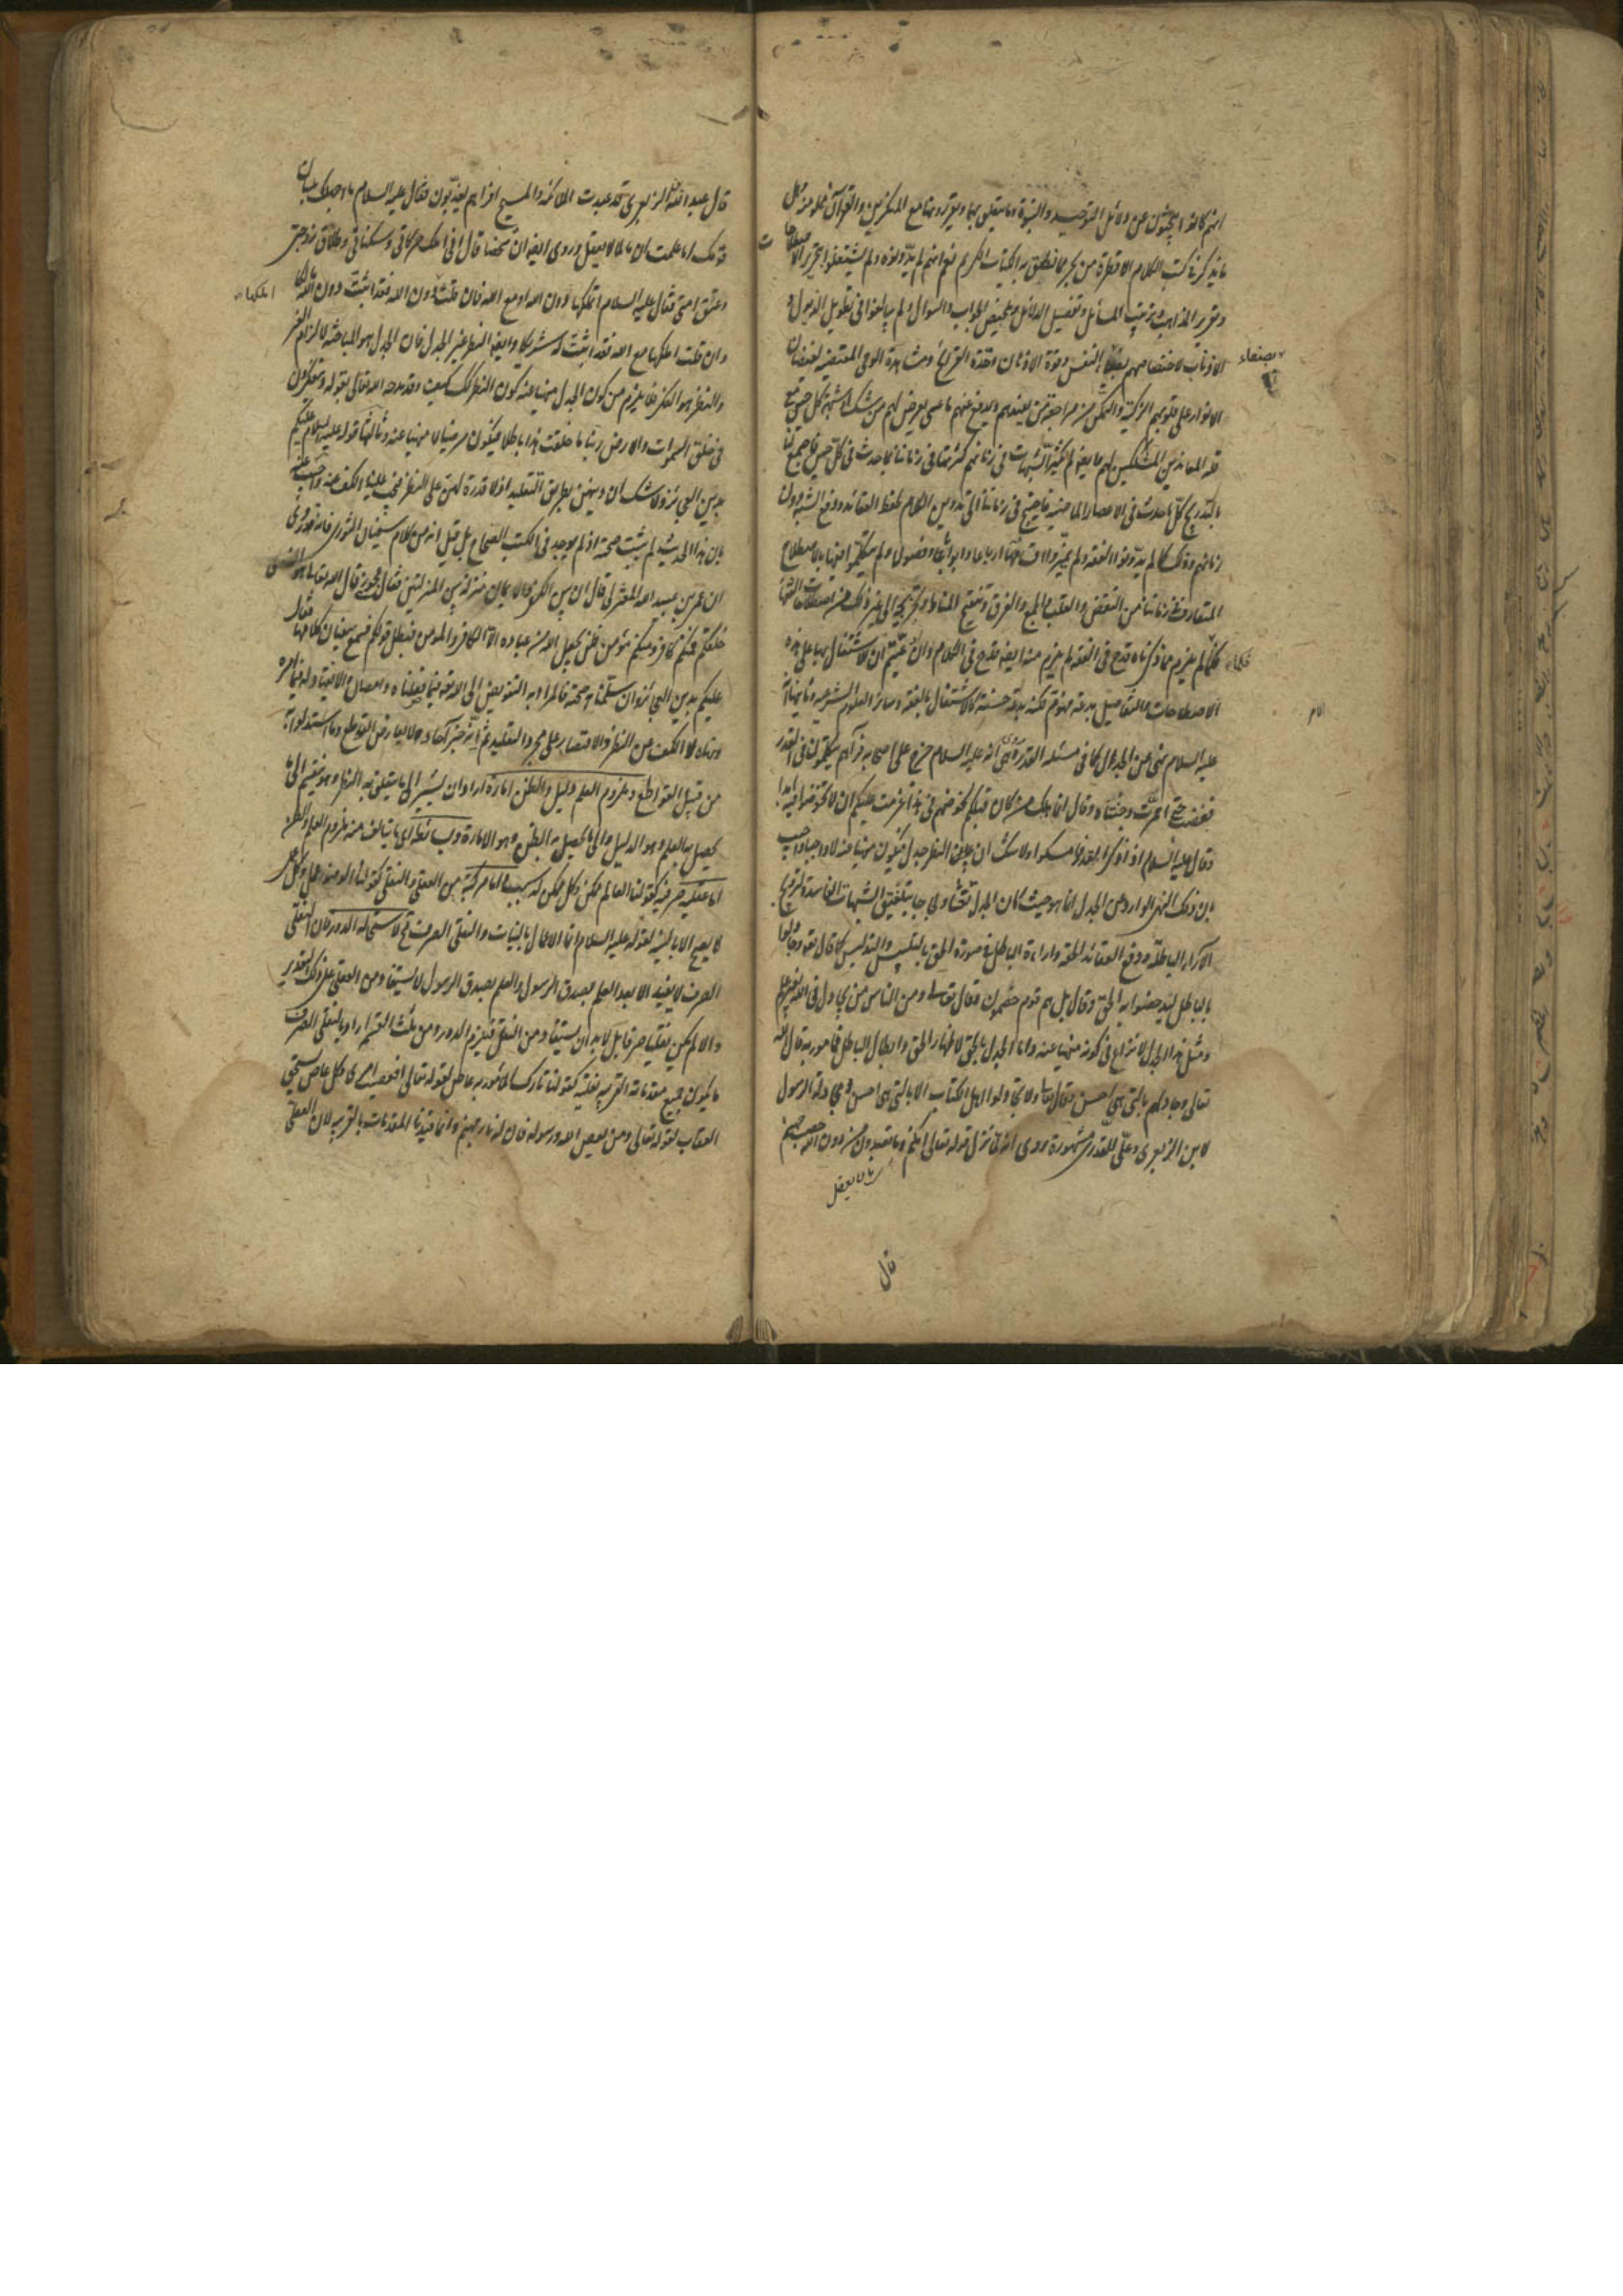 انهم كانوا يبحثون عن دلائل التوحيد والنبوة وما يتعلق بهما ويقررونها مع المنكرين والقرآن مملو منه وهل
ما يذكر في كتب الكلام الا قطرة من بحر مما نطق به الكتاب الكريم نعم انهم لم يدونوه ولم يشتغلوا بتحرير الاصطلاحات
وتقرير المذاهب وترتيب المسائل وتفصيل الدلائل وتلخيص الجواب والسؤال ولم يبالغوا في تطويل الذيول و
الاذناب لاختصاصهم بصفاء النفس وقوة الاذهان وحدة القرائح ومشاهدة الوحي المقتضية لفيضان
الانوار على قلوبهم الزكية والتمكن من مراجعة من يفيدهم ويدفع عنهم ما عسى يعرض لهم من شك او شبهة كل حين مع
قلة المعاندين المشككين لهم ولم يكثر الشبهات في زمانهم كثرتها في زماننا بما حدث في كل حين فاجتمع لنا
بالتدريج كل ما حدث في الاعصار الماضية فاحتيج في زماننا الى تدوين الكلام لحفظ العقائد ودفع الشبه دون
زمانهم وذلك كما لم يدونوا الفقه ولم يميزوا اقسامها ارباعا وابوابا وفصولا ولم يتكلموا فيها بالاصطلاح
المتعارف في زماننا من النقض والقلب والجمع والفرق وتنقيح المناط وتخريجه الى غير ذلك من اصطلاحات الفقهاء
فكما لم يلزم مما ذكرناه قدح في الفقه لم يلزم منه ايضا قدح في الكلام وان عنيتم ان الاشتغال بها على هذه
الاصطلاحات والتفاصيل بدعة فهو مسلم لكنه بدعة حسنة كالاشتغال بالفقه وسائر العلوم الشرعية وثانيها انه
عليه السلام نهى عن الجدل كما في مسئلة القدر روي انه عليه السلام خرج على اصحابه فرآهم يتكلمون في القدر
فغضب حتى احمرت وجنتاه وقال انما هلك من كان قبلكم لخوضهم في هذا عزمت عليكم ان لا تخوضوا فيه ابدا
وقال عليه السلام اذا ذكر القدر فامسكوا ولا شك ان النظر جدل فيكون منهيا عنه لا واجبا واجيب
بان ذلك النهي الوارد عن الجدل انما هو حيث كان الجدل تعنتا ولجاجا بتلفيق الشبهات الفاسدة لترويج
الآراء الباطلة ودفع العقائد الحقة واراءة الباطل في صورة الحق بالتلبيس والتدليس كما قال تعالى وجادلوا
بالباطل ليدحضوا به الحق وقال بل هم قوم خصمون وقال تعالى ومن الناس من يجادل في الله بغير علم
ومثل هذا الجدل لا نزاع في كونه منهيا عنه واما الجدل بالحق لاظهار الحق وابطال الباطل فمامور به قال الله
تعالى وجادلهم بالتي هي احسن وقال تعالى ولا تجادلوا اهل الكتاب الا بالتي هي احسن ومجادلة الرسول
لابن الزبعرى وعلي للقدري مشهورة روي انه لما نزل قوله تعالى انكم وما تعبدون من دون الله حصب جهنم
قال
قال عبد الله الزبعرى قد عبدت الملائكة والمسيح افتراهم يعذبون فقال عليه السلام ما اجهلك بلسان
قومك اما علمت ان ما لما لا يعقل وروي ايضا ان شخصا قال اني املك حركاتي وسكناتي وطلاق زوجتي
وعتق امتي فقال عليه السلام اتملكها دون الله او مع الله فان قلت املكها دون الله فقد اثبت دون الله مالكا
وان قلت املكها مع الله فقد اثبت له شريكا وايضا النظر غير الجدل فان الجدل هو المباحثة لالزام الغير
والنظر هو الفكر فلا يلزم من كون الجدل منهيا عنه كون النظر كذلك كيف وقد مدحه الله تعالى بقوله ويتفكرون
في خلق السموات والارض ربنا ما خلقت هذا باطلا فيكون مرضيا لا منهيا عنه وثالثها قوله عليه السلام عليكم
بدين العجائز ولا شك ان دينهن بطريق التقليد اذ لا قدرة لهن على النظر فيجب علينا الكف عنه واجيب عنه
بان هذا الحديث لم يثبت صحته اذ لم يوجد في الكتب الصحاح بل قيل انه من كلام سفيان الثوري فانه روي
ان عمر بن عبيد الله المعتزلي قال ان بين الكفر والايمان منزلة بين المنزلتين فقال عجوزة قال الله تعالى هو الذي
خلقكم فمنكم كافر ومنكم مؤمن فلم يجعل الله من عباده الا الكافر والمؤمن فبطل قولكم فسمع سفيان كلامها فقال
عليكم بدين العجائز وان سلمنا صحته فالمراد به التفويض الى الله تعالى فيما قضاه وامضاه والانقياد له فيما امره
ونهاه لا الكف عن النظر والاقتصار على مجرد التقليد ثم انه خبر آحاد ولا يعارض القواطع وما استدلوا به
من قبيل القواطع وملزوم العلم دليل والظن امارة اراد ان يشير الى ما يتعلق به النظر وهو ينقسم الى ما
يحصل به العلم وهو الدليل والى ما يحصل به الظن وهو الامارة وبسائطه اي ما يتألف منه ملزوم العلم والظن
اما عقلية صرفة كقولنا العالم ممكن وكل ممكن له سبب واما مركبة من العقلي والنقلي كقولنا الوضوء عمل وكل عمل
لا يصح الا بالنية لقوله عليه السلام انما الاعمال بالنيات والنقلي الصرف محال لاستحالة الدور فان النقلي
الصرف لا يفيد الا بعد العلم بصدق الرسول والعلم بصدق الرسول لا يستفاد من العقلي على ذلك التقدير
والا لم يكن نقليا صرفا بل لا بد ان يستفاد من النقل فيلزم الدور ومن ثلث القسم اراد بالنقلي الصرف
ما يكون جميع مقدماته القريبة نقلية كقولنا تارك المأمور به عاص لقوله تعالى افعصيت امري وكل عاص يستحق
العقاب لقوله تعالى ومن يعص الله ورسوله فان له نار جهنم وانما قيدنا المقدمات بالقريبة لان العقلي